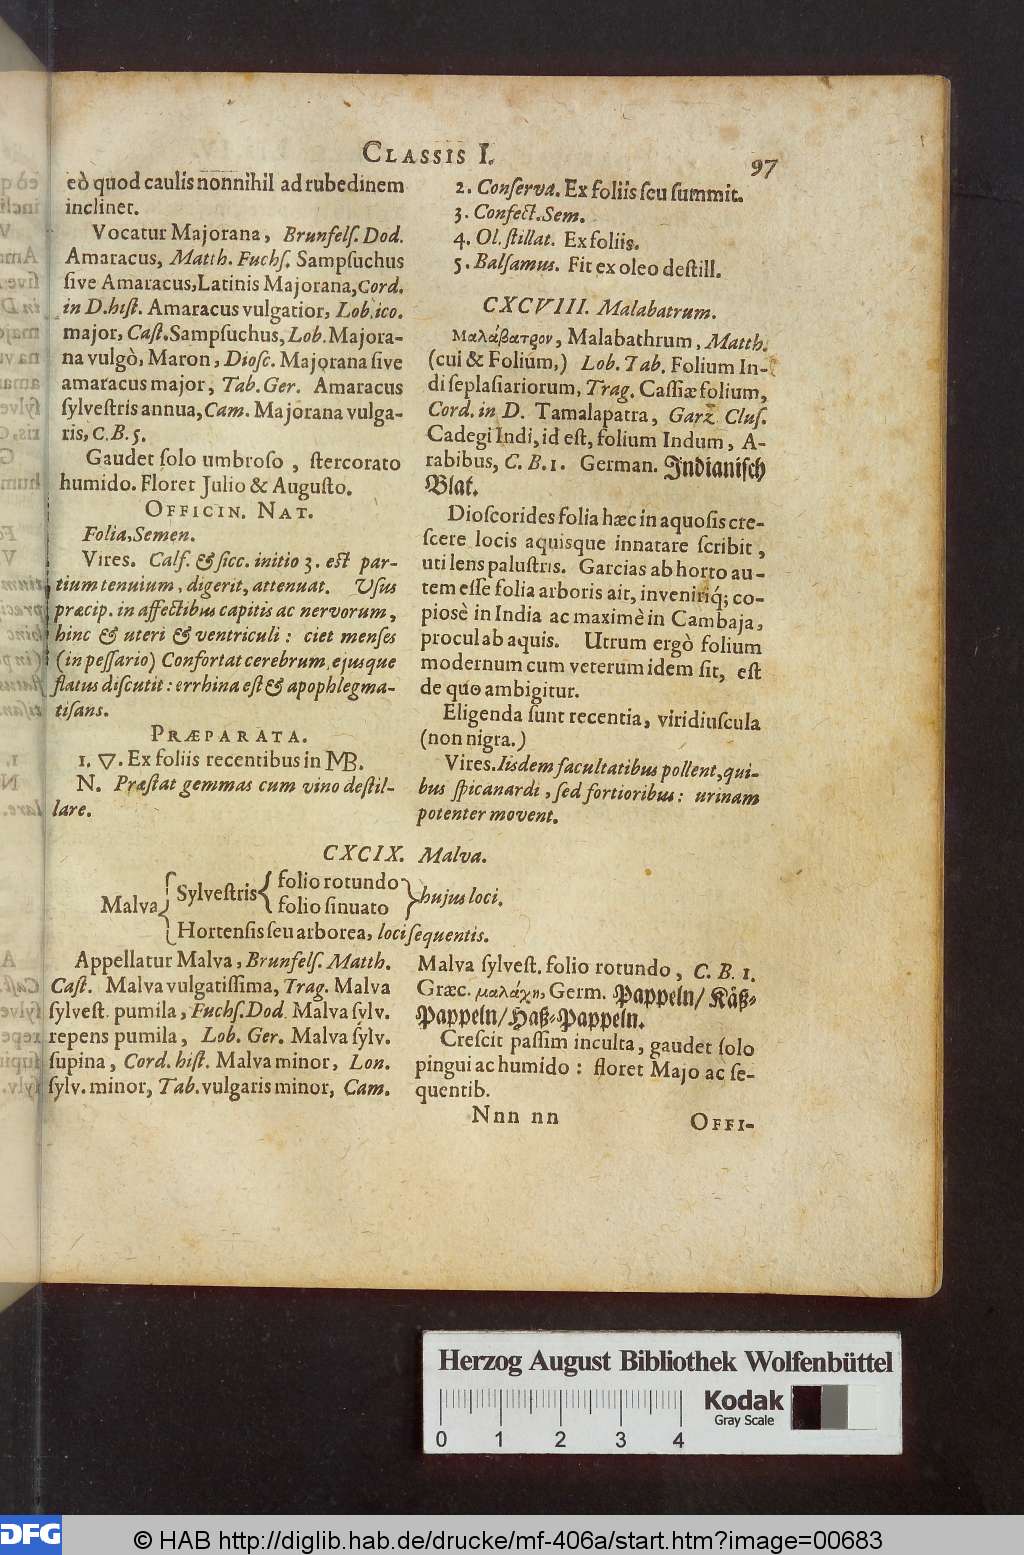 CLASSIS I.
97
eò quod caulis nonnihil ad rubedinem
inclinet.
Vocatur Majorana, Brunfelſ. Dod.
Amaracus, Matth. Fuchſ. Sampſuchus
ſive Amaracus, Latinis Majorana, Cord.
in D. hiſt. Amaracus vulgatior, Lob. ico.
major, Caſt. Sampſuchus, Lob. Majora-
na vulgò, Maron, Dioſc. Majorana ſive
amaracus major, Tab. Ger. Amaracus
ſylveſtris annua, Cam. Majorana vulga-
ris, C. B. 5.
Gaudet ſolo umbroſo, ſtercorato
humido. Floret Julio & Auguſto.
OFFICIN. NAT.
Folia, Semen.
Vires. Calf. & ſicc. initio 3. eſt par-
tium tenuium, digerit, attenuat. Uſus
præcip. in affectibus capitis ac nervorum,
hinc & uteri & ventriculi: ciet menſes
(in peſſario) Confortat cerebrum, ejusque
flatus diſcutit: errhina eſt & apophlegma-
tiſans.
PRÆPARATA.
1. ▽. Ex foliis recentibus in MB.
N. Præſtat gemmas cum vino deſtil-
lare.
2. Conſerva. Ex foliis ſeu ſummit.
3. Confect. Sem.
4. Ol. ſtillat. Ex foliis.
5. Balſamus. Fit ex oleo deſtill.
CXCVIII. Malabatrum.
Μαλάβατρον, Malabathrum, Matth.
(cui & Folium,) Lob. Tab. Folium In-
di ſeplaſiariorum, Trag. Caſſiæ folium,
Cord. in D. Tamalapatra, Garz. Cluſ.
Cadegi Indi, id eſt, folium Indum, A-
rabibus, C. B. 1. German. Indianiſch
Blat.
Dioſcorides folia hæc in aquoſis cre-
ſcere locis aquisque innatare ſcribit,
uti lens paluſtris. Garcias ab horto au-
tem eſſe folia arboris ait, inveniriq́; co-
piosè in India ac maximè in Cambaja,
procul ab aquis. Utrum ergò folium
modernum cum veterum idem ſit, eſt
de quo ambigitur.
Eligenda ſunt recentia, viridiuſcula
(non nigra.)
Vires. Iisdem facultatibus pollent, qui-
bus ſpicanardi, ſed fortioribus: urinam
potenter movent.
CXCIX. Malva.
Malva { Sylveſtris { folio rotundo
folio ſinuato } hujus loci.
Hortenſis ſeu arborea, loci ſequentis.
Appellatur Malva, Brunfelſ. Matth.
Caſt. Malva vulgatiſſima, Trag. Malva
ſylveſt. pumila, Fuchſ. Dod. Malva ſylv.
repens pumila, Lob. Ger. Malva ſylv.
ſupina, Cord. hiſt. Malva minor, Lon.
ſylv. minor, Tab. vulgaris minor, Cam.
Malva ſylveſt. folio rotundo, C. B. 1.
Græc. μαλάχη, Germ. Pappeln/ Käß-
Pappeln/ Haß-Pappeln.
Creſcit paſſim inculta, gaudet ſolo
pingui ac humido: floret Majo ac ſe-
quentib.
Nnn nn
OFFI-
Herzog August Bibliothek Wolfenbüttel
Kodak
Gray Scale
0 1 2 3 4
DFG
© HAB http://diglib.hab.de/drucke/mf-406a/start.htm?image=00683